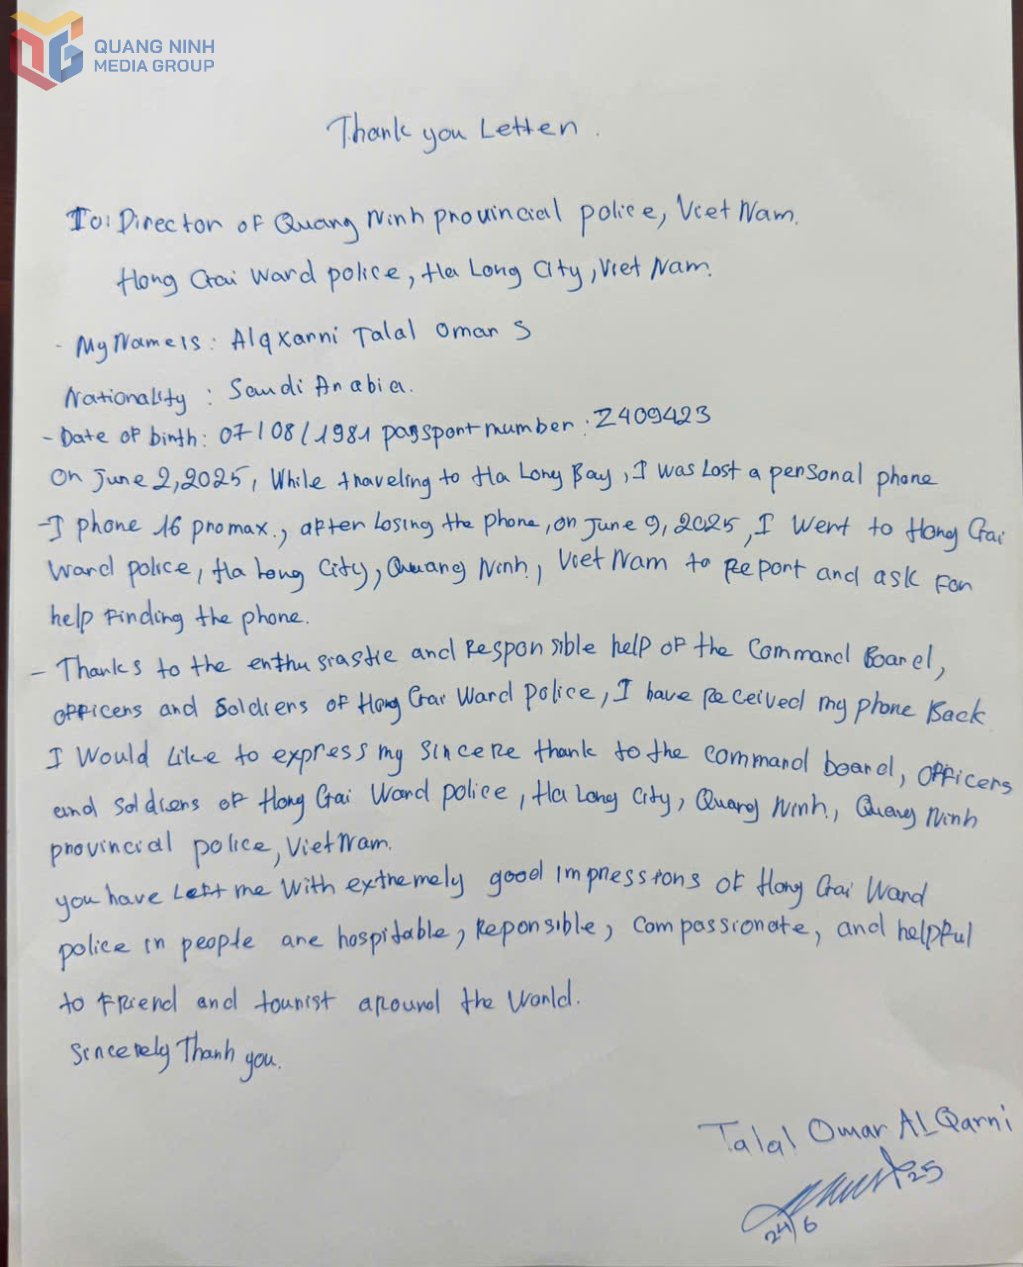 QUANG NINH
MEDIA GROUP
Thank you Letter.
To: Director of Quang Ninh provincial police, Viet Nam.
Hong Gai Ward police, Ha Long City, Viet Nam.
- My Name is: Alqxarni Talal Omar S
Nationality: Saudi Arabia.
- Date of birth: 07/08/1981 passport number: Z409423
On June 2, 2025, While traveling to Ha Long Bay, I was lost a personal phone
-I phone 16 promax., after losing the phone, on June 9, 2025, I Went to Hong Gai
Ward police, Ha Long City, Quang Ninh, Viet Nam to Report and ask For
help Finding the phone.
- Thanks to the enthusiastic and Responsible help of the Command Board,
officers and Soldiers of Hong Gai Ward Police, I have Received my phone Back
I Would Like to express my sincere thank to the command board, officers
and soldiers of Hong Gai Ward police, Ha Long City, Quang Ninh, Quang Ninh
provincial police, Viet Nam.
you have Left me With extremely good impressions of Hong Gai Ward
police in people are hospitable, Reponsible, compassionate, and helpful
to Friend and tourist around the World.
Sincerely Thank you.
Talal Omar ALQarni
25
24/6